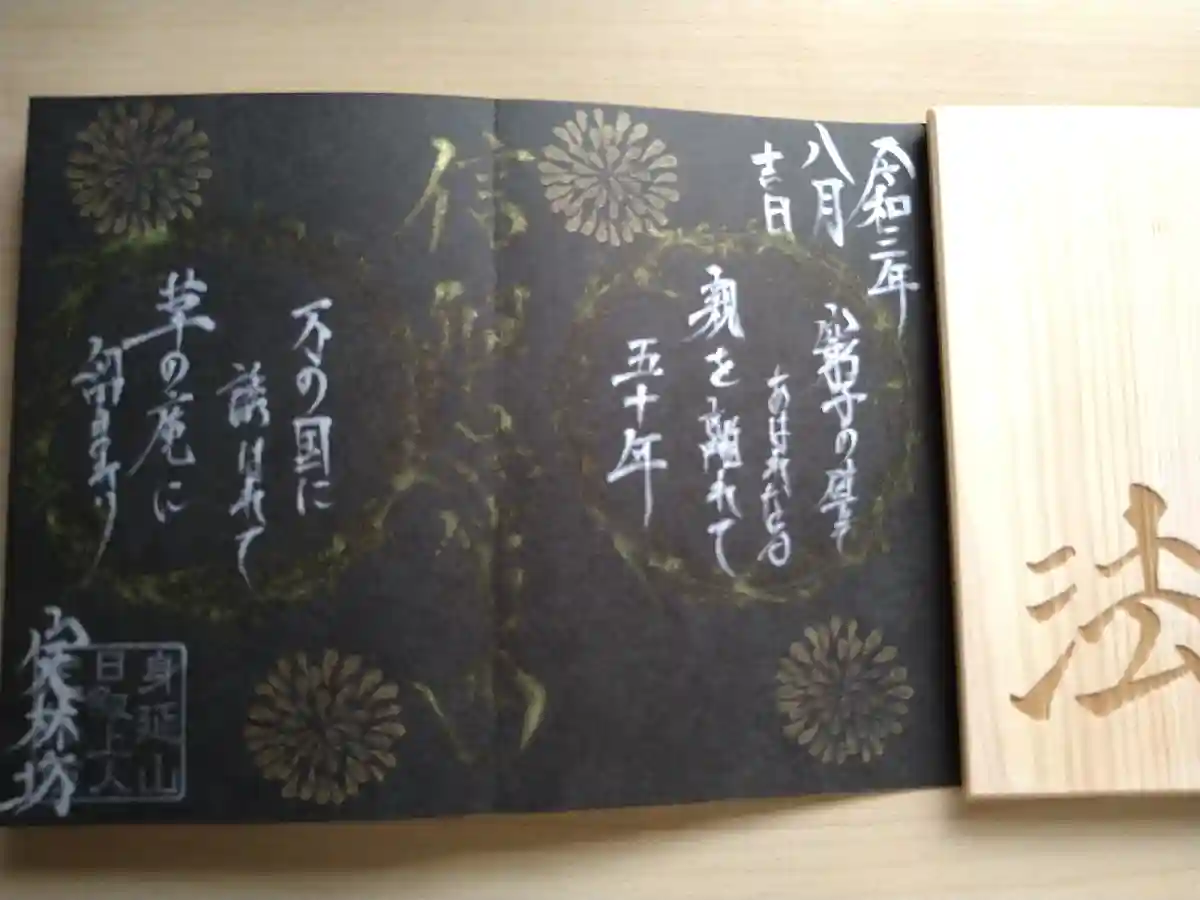 令和三年
八月
吉日
弟子の
あはれなる
親を離れて
五十年
信
心
万の国に
誘はれて
草の庵に
留まれり
林坊
身延山
日叡上人
法